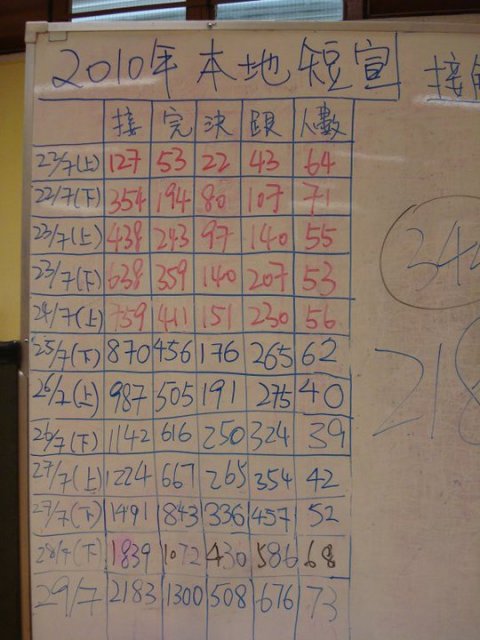 2010年本地短宣
接 完 決 跟 人數
22/7(上) 127 53 22 43 64
22/7(下) 354 194 80 107 71
23/7(上) 438 243 97 140 55
23/7(下) 638 359 140 207 53
24/7(上) 759 411 151 230 56
25/7(下) 870 456 176 265 62
26/7(上) 987 505 191 275 40
26/7(下) 1142 616 250 324 39
27/7(上) 1224 667 265 354 42
27/7(下) 1491 843 336 457 52
28/7(下) 1839 1072 430 586 68
29/7 2183 1300 508 676 73
接
344
218